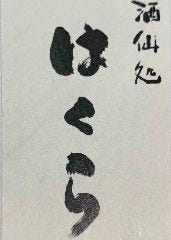 酒仙処
はくら